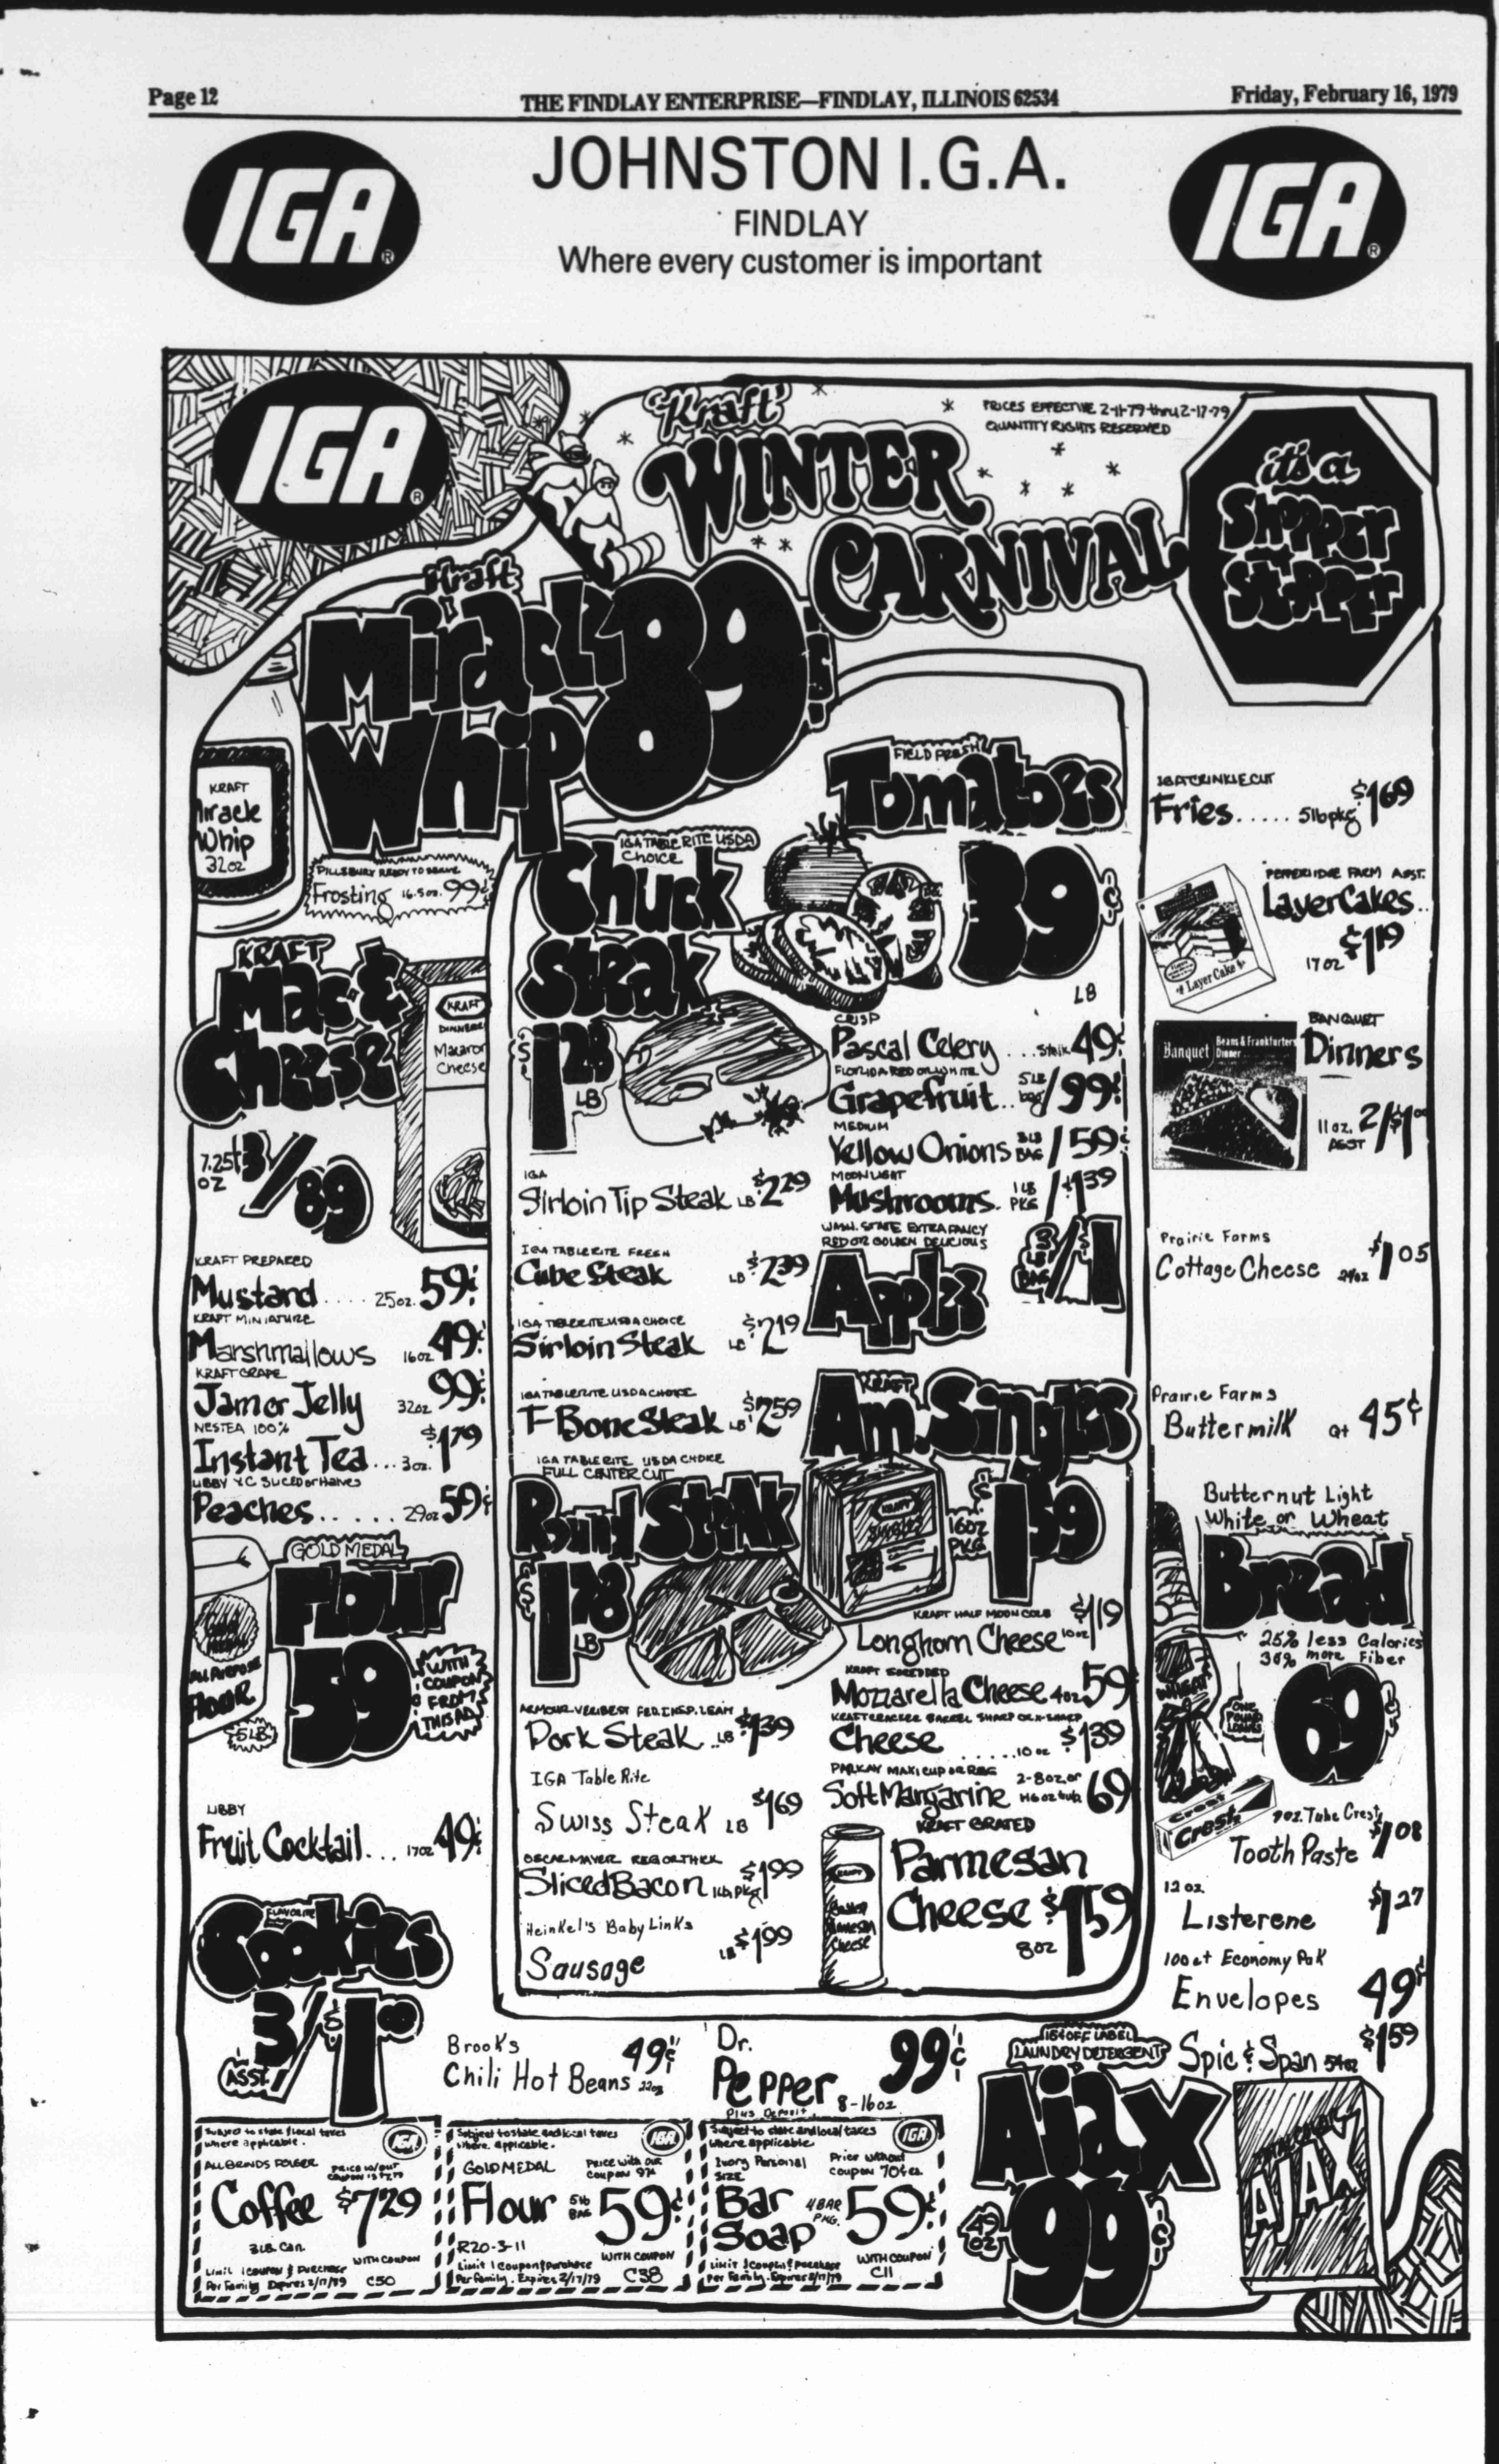 Page 12
THE FINDLAY ENTERPRISE—FINDLAY, ILLINOIS 62534
Friday, February 16, 1979
IGA
JOHNSTON I.G.A.
FINDLAY
Where every customer is important
IGA
IGA
"Kraft"
WINTER
CARNIVAL
PRICES EFFECTIVE 2-11-79 thru 2-17-79
QUANTITY RIGHTS RESERVED
it's a
Shopper
Stopper
Kraft
Miracle
Whip
89¢
KRAFT
Miracle
Whip
32 oz
PILLSBURY READY TO
Frosting 16.5 oz. 99¢
KRAFT
Mac &
Cheese
KRAFT
DINNER
Cheese
7.25
OZ
3/89
KRAFT PREPARED
Mustard.... 25 oz. 59¢
KRAFT MINIATURE
Marshmallows 16 oz 49¢
KRAFT GRAPE
Jam or Jelly 32 oz 99¢
NESTEA 100%
Instant Tea... 3 oz. $1.79
LIBBY YC SLICED or Halves
Peaches...... 29 oz 59¢
GOLD MEDAL
Flour
59
WITH
COUPON
FROM
THIS AD
ALL PURPOSE
FLOUR
5 LB
LIBBY
Fruit Cocktail... 17 oz 49¢
FLAVORITE
Cookies
3/$1.00
ASST.
IGA TABLE RITE USDA
CHOICE
Chuck
Steak
$1.28
LB
IGA
Sirloin Tip Steak LB $2.29
IGA TABLERITE FRESH
Cube Steak LB $2.39
IGA TABLERITE USDA CHOICE
Sirloin Steak LB $2.19
IGA TABLERITE USDA CHOICE
T-Bone Steak LB $2.59
IGA TABLE RITE USDA CHOICE
FULL CENTER CUT
Round Steak
$1.78
LB
ARMOUR VERIBEST FED. INSP. LEAN
Pork Steak .. LB $1.39
IGA Table Rite
Swiss Steak LB $1.69
OSCAR MAYER REG OR THICK
Sliced Bacon 1 Lb pkg $1.99
Heinkel's Baby Links
Sausage LB $1.99
FIELD FRESH
Tomatoes
39¢
LB
CRISP
Pascal Celery ... stalk 49¢
FLORIDA RED OR WHITE
Grapefruit.. 5 LB bag/99¢
MEDIUM
Yellow Onions 3 LB BAG / 59¢
MOONLIGHT
Mushrooms. 1 LB PKG / $1.39
WASH. STATE EXTRA FANCY
RED OR GOLDEN DELICIOUS
Apples
3 LB BAG/$1
KRAFT
Am. Singles
KRAFT
SINGLES
16 OZ
PKG
$1.59
KRAFT HALF MOON COLB
Longhorn Cheese 10 oz $1.19
KRAFT SHREDDED
Mozzarella Cheese 4 oz 59
KRAFT CRACKER BARREL SHARP OR X-SHARP
Cheese .....10 oz $1.39
PARKAY MAXI CUP OR REG
Soft Margarine 2-8 oz. or 1-16 oz tub 69
KRAFT GRATED
Parmesan
Cheese $1.59
8 OZ
IGA CRINKLE CUT
Fries..... 5 lb pkg $1.69
PEPPERIDGE FARM ASST.
Layer Cakes..
17 OZ $1.19
Layer Cake
BANQUET
Dinners
Banquet Beans & Frankfurter Dinner
11 oz. 2/$1.00
ASST
Prairie Farms
Cottage Cheese 24 oz $1.05
Prairie Farms
Buttermilk Qt 45¢
Butternut Light
White or Wheat
Bread
25% less Calories
30% more Fiber
WHEAT
ONE
POUND
LOAVES
69¢
Crest
Crest
9 oz. Tube Crest
Tooth Paste $1.08
12 oz.
Listerene $1.27
100 ct Economy Pak
Envelopes 49¢
Spic & Span 54 oz $1.59
Brooks
Chili Hot Beans 22 oz 49¢
Dr.
Pepper 8-16 oz 99¢
Plus Deposit
15¢ OFF LABEL
LAUNDRY DETERGENT
Ajax
49
OZ
99¢
AJAX
Subject to state & local taxes
where applicable.
IGA
ALL GRINDS FOLGER
PRICE W/OUT
COUPON IS $7.79
Coffee $7.29
3 LB. Can.
WITH COUPON
Limit 1 coupon & purchase
Per Family Expires 2/17/79 C50
Subject to state and local taxes
where applicable.
IGA
GOLD MEDAL
Price with out
coupon 97¢
Flour 5 lb BAG 59¢
R20-3-11
WITH COUPON
Limit 1 coupon & purchase
Per Family. Expires 2/17/79 C38
Subject to state and local taxes
where applicable
IGA
Ivory Personal
SIZE
Price without
coupon 70¢ ea.
Bar
Soap
4 BAR
PKG.
59¢
WITH COUPON
Limit 1 Coupon & purchase
Per Family. Expires 2/17/79 C11